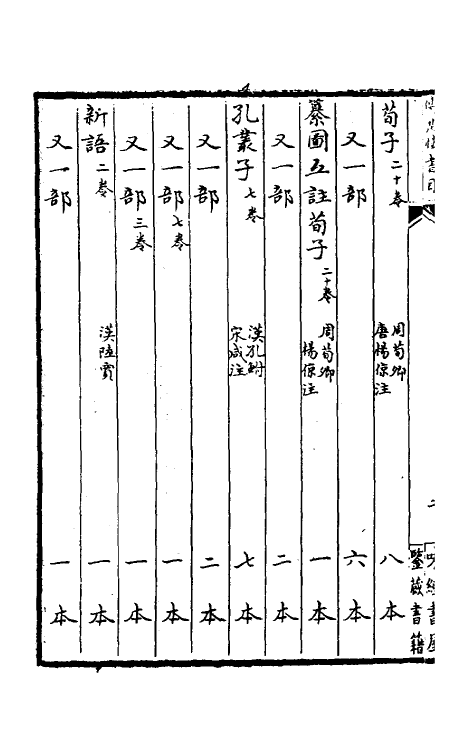 荀子 二十卷 周荀卿 唐楊倞注 八本
又一部 六本
纂圖互註荀子 二十卷 周荀卿 楊倞注 一本
又一部 二本
孔叢子 七卷 漢孔鮒 宋咸注 七本
又一部 二本
又一部 七卷 一本
又一部 三卷 一本
新語 二卷 漢陸賈 一本
又一部 一本
鑒藏書籍